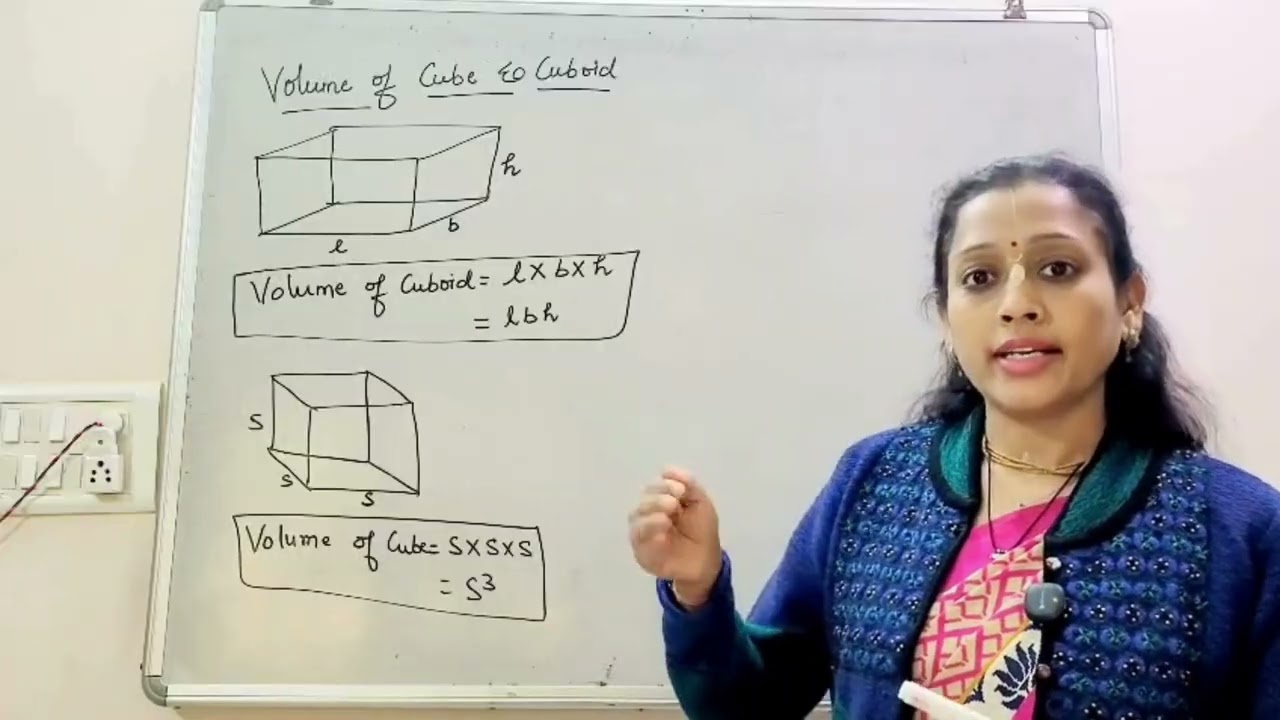 Volume of Cube & Cuboid
h
b
l
Volume of Cuboid = l × b × h
= lbh
S
S
S
Volume of Cube = S × S × S
= S³